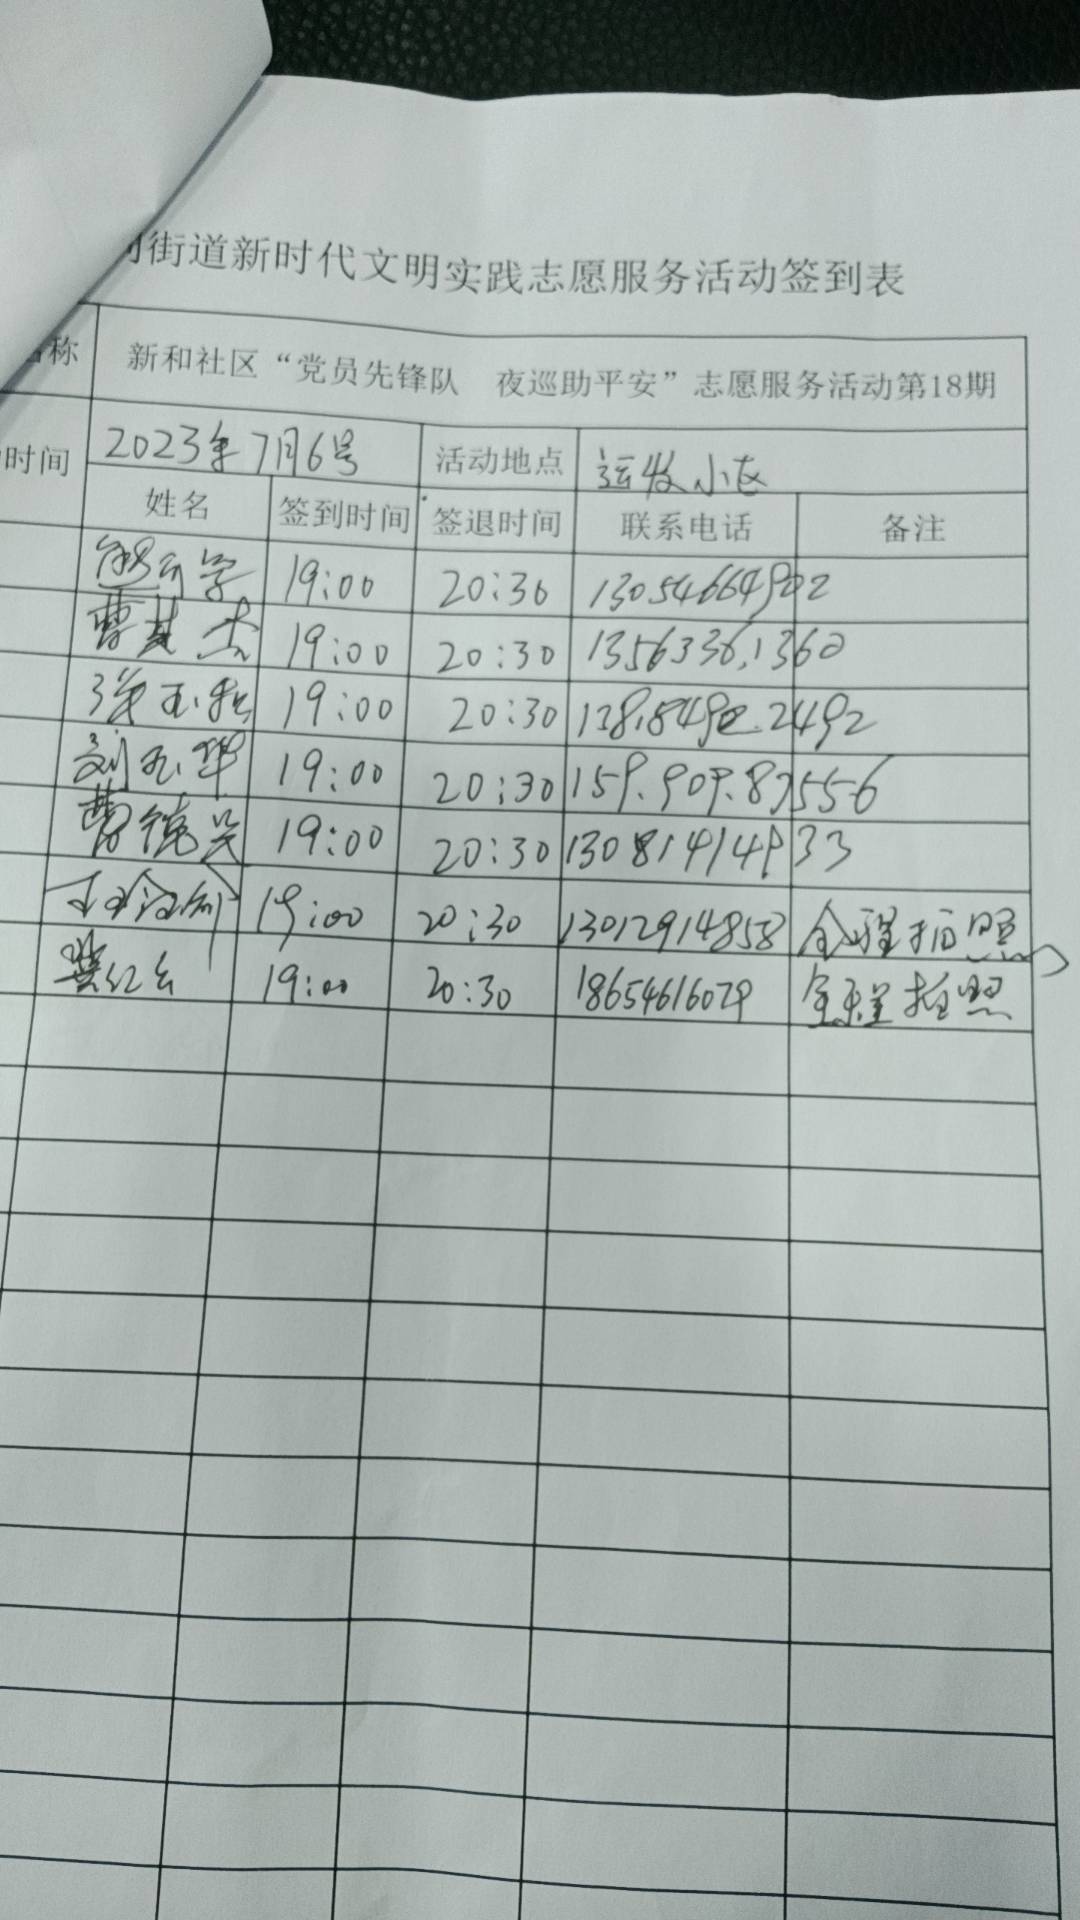 街道新时代文明实践志愿服务活动签到表
名称 新和社区“党员先锋队 夜巡助平安”志愿服务活动第18期
时间 2023年7月6号 活动地点 运牧小区
姓名 签到时间 签退时间 联系电话 备注
19:00 20:30 13054664902
曹其杰 19:00 20:30 1356336,1360
19:00 20:30 138.5490.2492
刘玉华 19:00 20:30 159.909.87556
曹德兴 19:00 20:30 13081414933
19:00 20:30 13012914858 全程拍照
19:00 20:30 18654616079 全程拍照